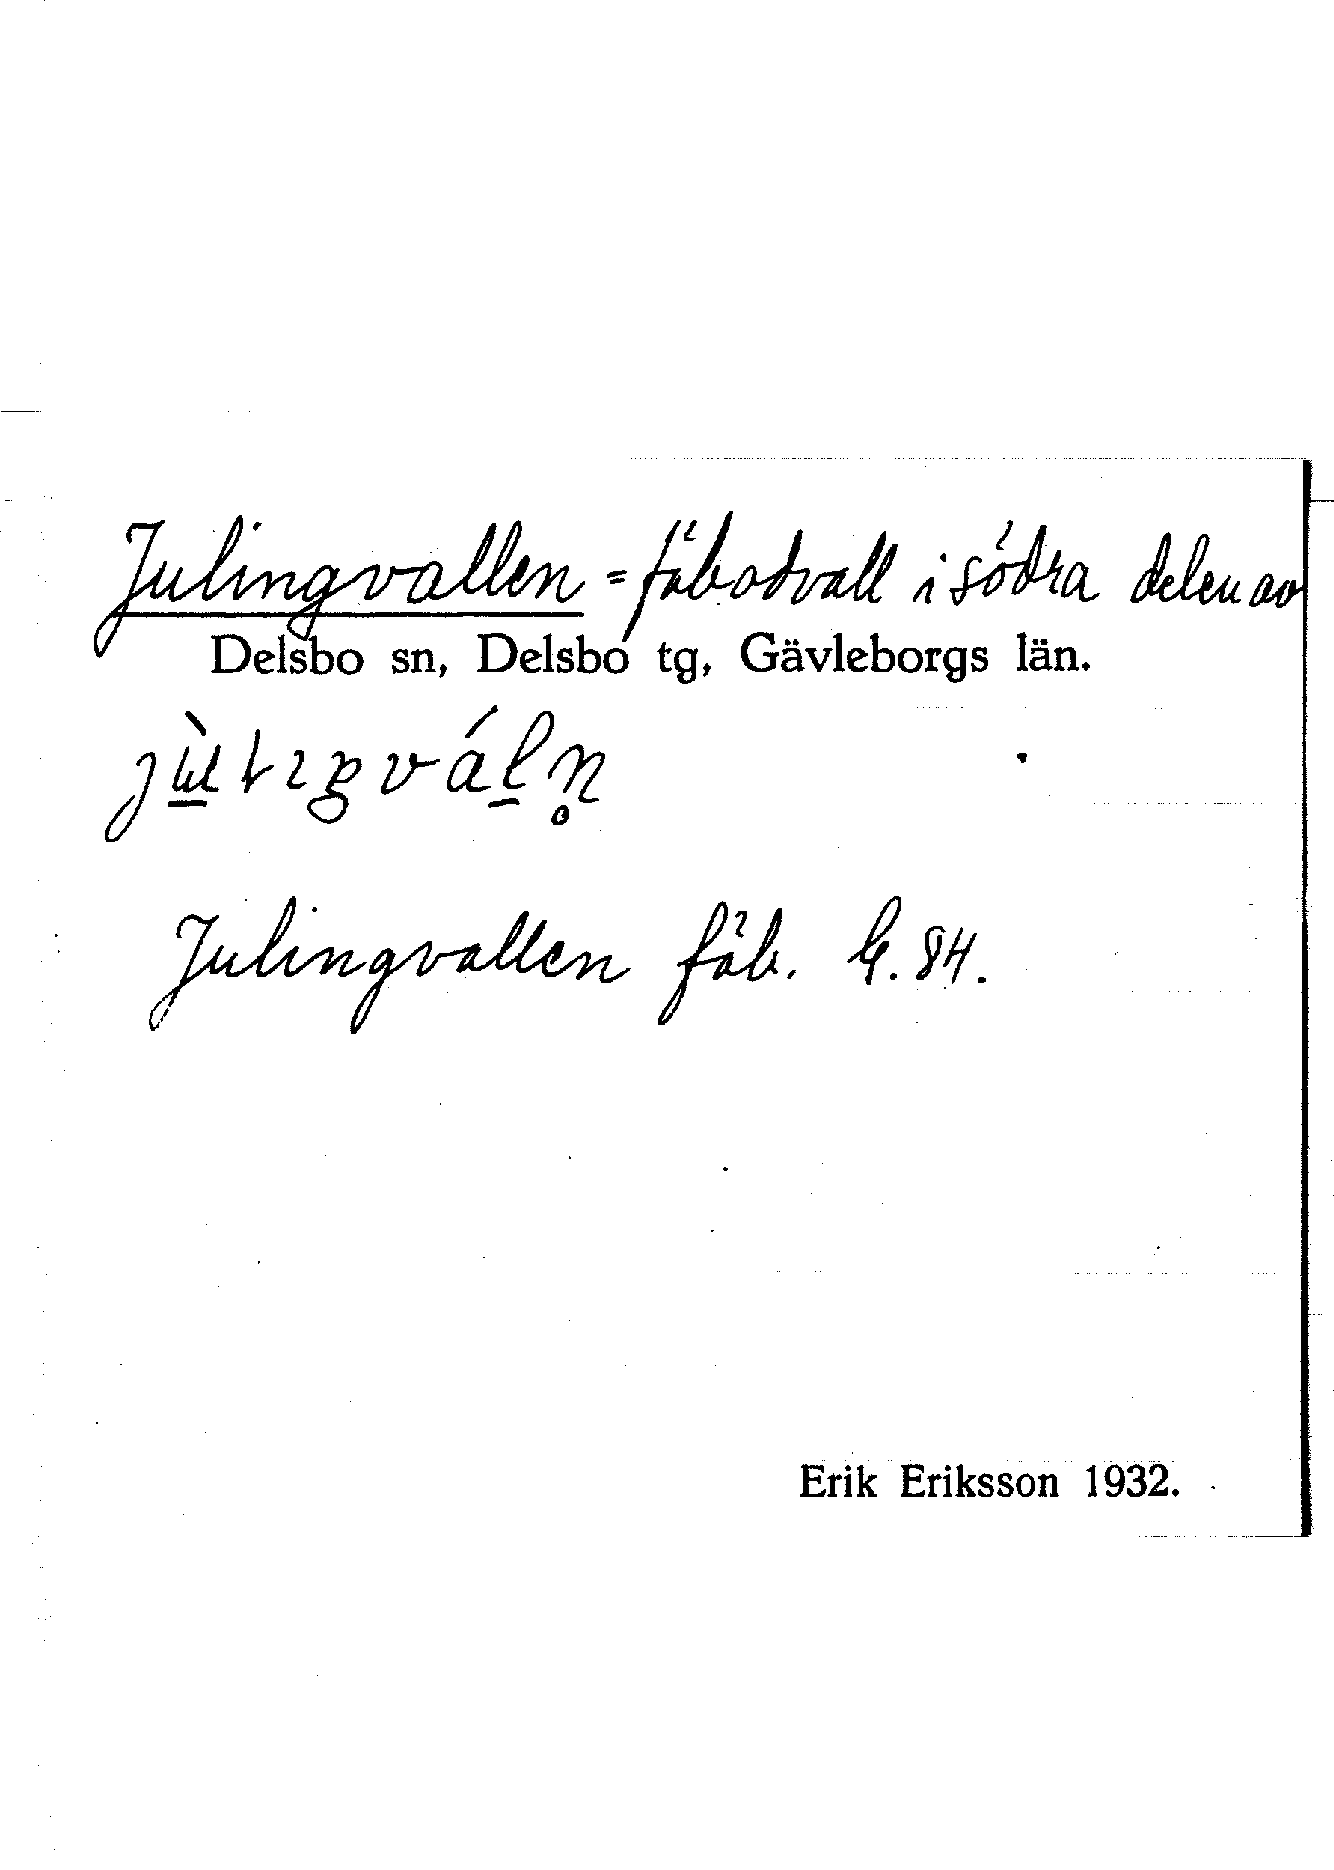 Julingvallen = fäbodvall i södra delen av
Delsbo sn, Delsbo tg, Gävleborgs län.
Julingvallen fäb. G. 84.
Erik Eriksson 1932.